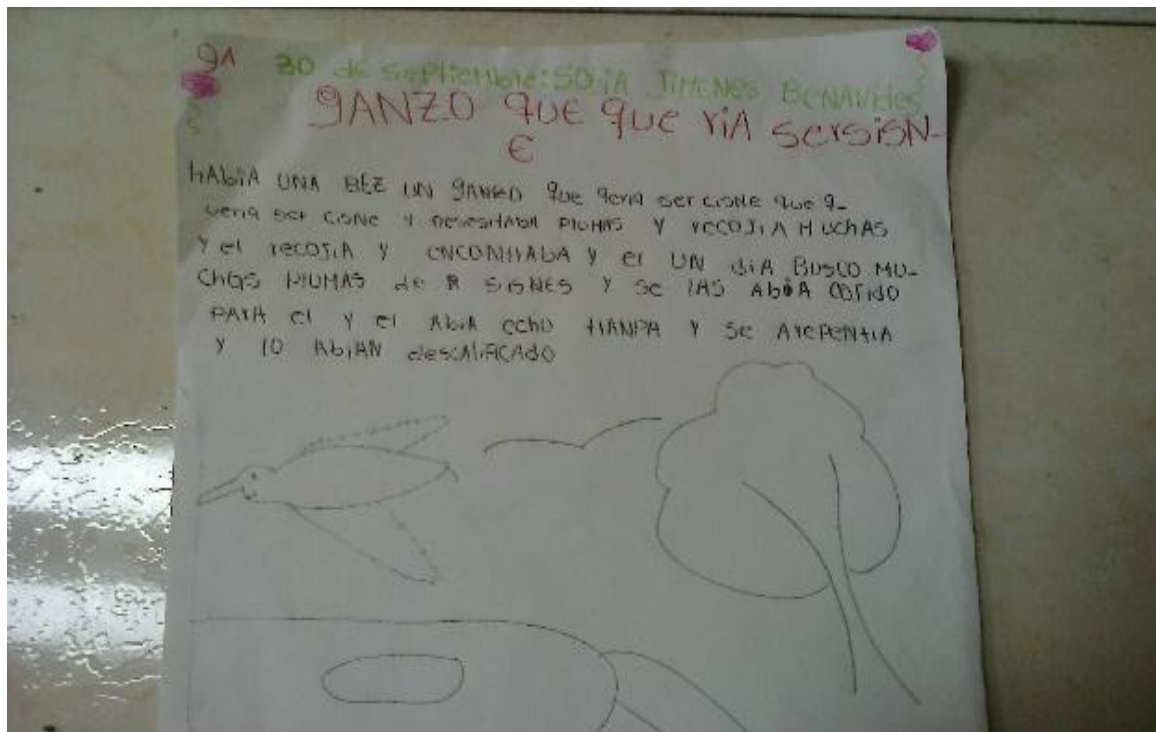 9A 30 de septiembre: SOFiA JiMENES BENAVides
gANZO que que riA sersisN-
E
HAbiA UNA BEZ UN gANZO que qeria ser cisne que q-
ueria ser cisne y nesesitaba plumas y recojiA muchAs
y el recojiA y encontraba y el UN diA Busco mu-
chas plumas de sisnes y se lAs AbiA cojido
parA el y el AbiA echo trAnpA y se ArepentiA
y lo AbiAN descAlificAdo